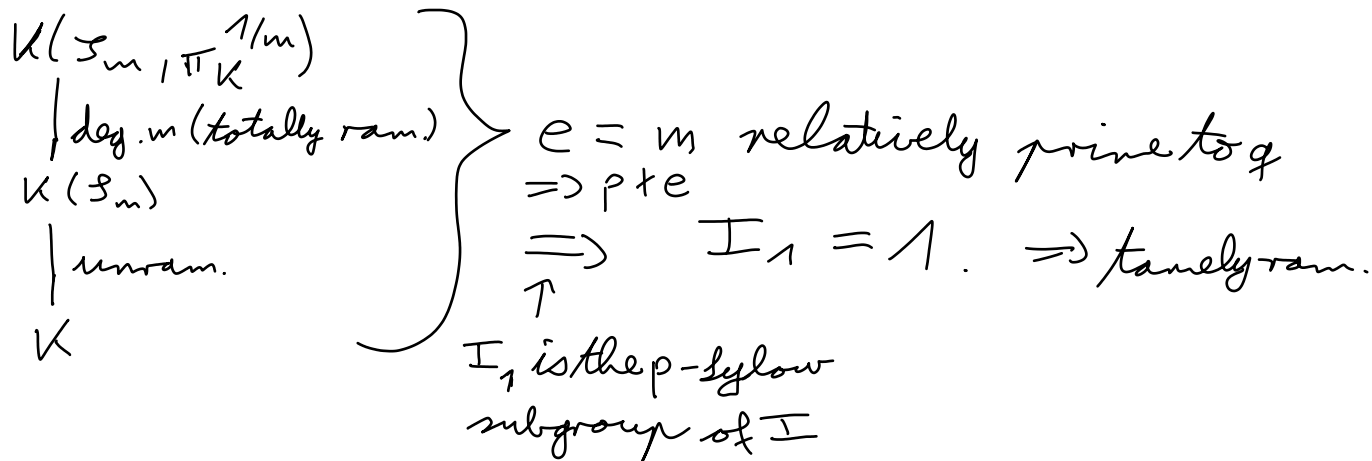 K(ζ_m, π_K^{1/m})
deg. m (totally ram.)
K(ζ_m)
unram.
K
e = m relatively prime to q
=> p ∤ e
=> I_1 = 1. => tamely ram.
↑
I_1 is the p-Sylow
subgroup of I